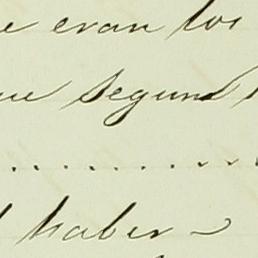 e eran los
ue segun
haber